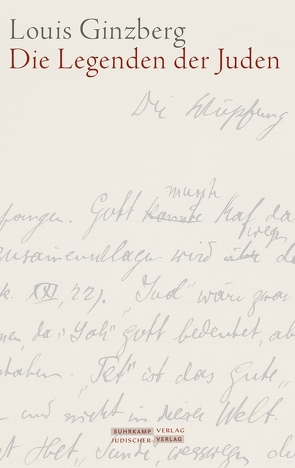 Louis Ginzberg
Die Legenden der Juden
Die Schöpfung
mußte
fangen. Gott konnte Kaf da
wegen
zusammenhängen wird über da
k. XXI, 22). "Jud" wäre zwar
men, da "Jah" Gott bedeutet, ab
"Tet" ist das Gute,
und nicht in dieser Welt.
Het, Sünde, weswegen di
SUHRKAMP VERLAG
JÜDISCHER VERLAG